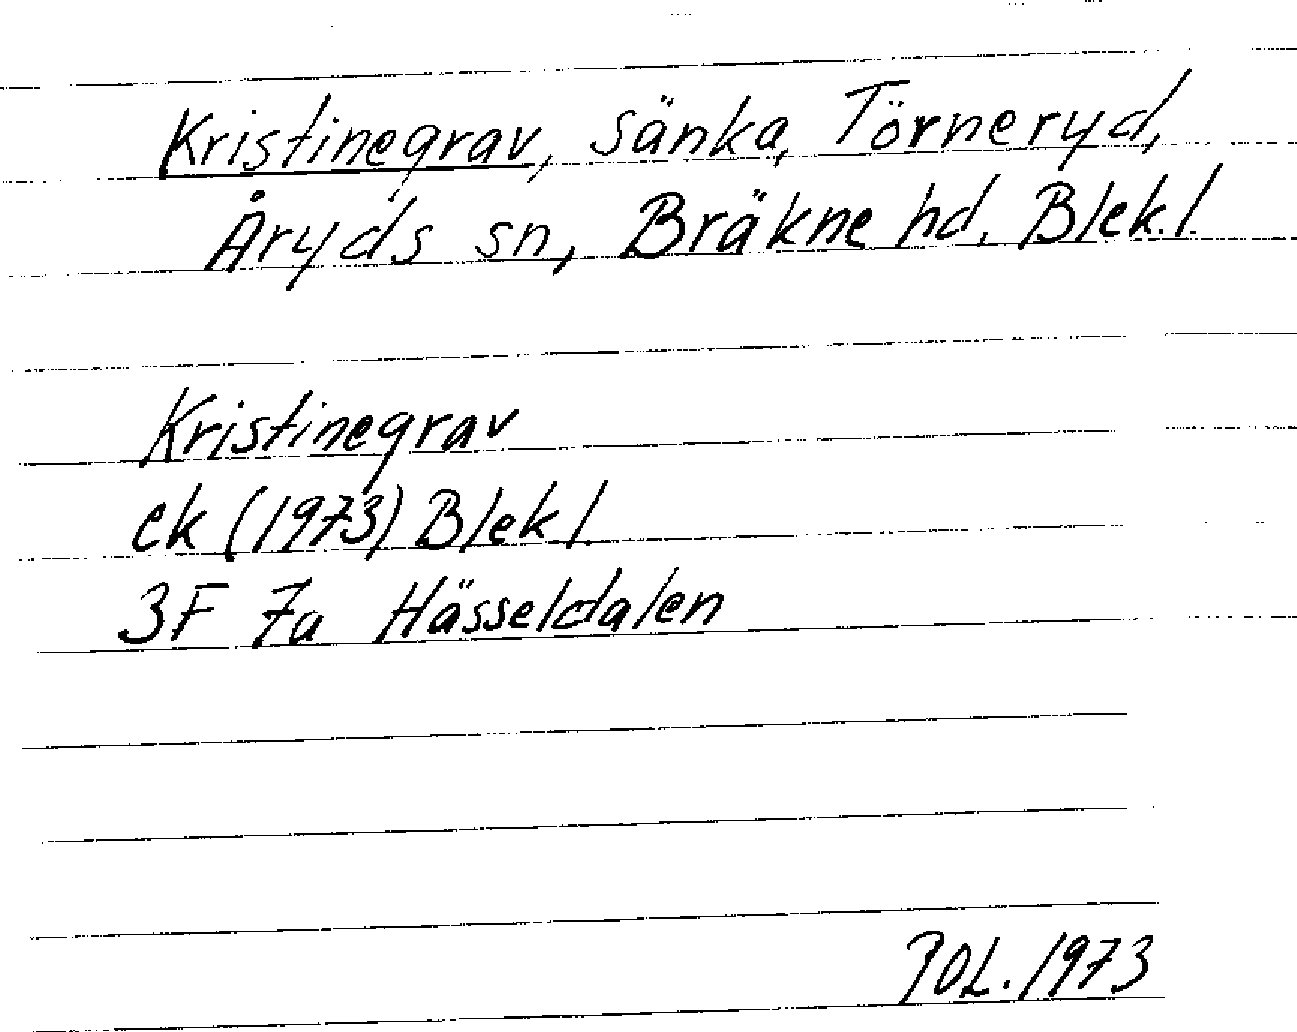 Kristinegrav, sänka, Törneryd,
Åryds sn, Bräkne hd. Blek.l.
Kristinegrav
ek (1973) Blek l.
3F 7a Hässeldalen
POL. 1973